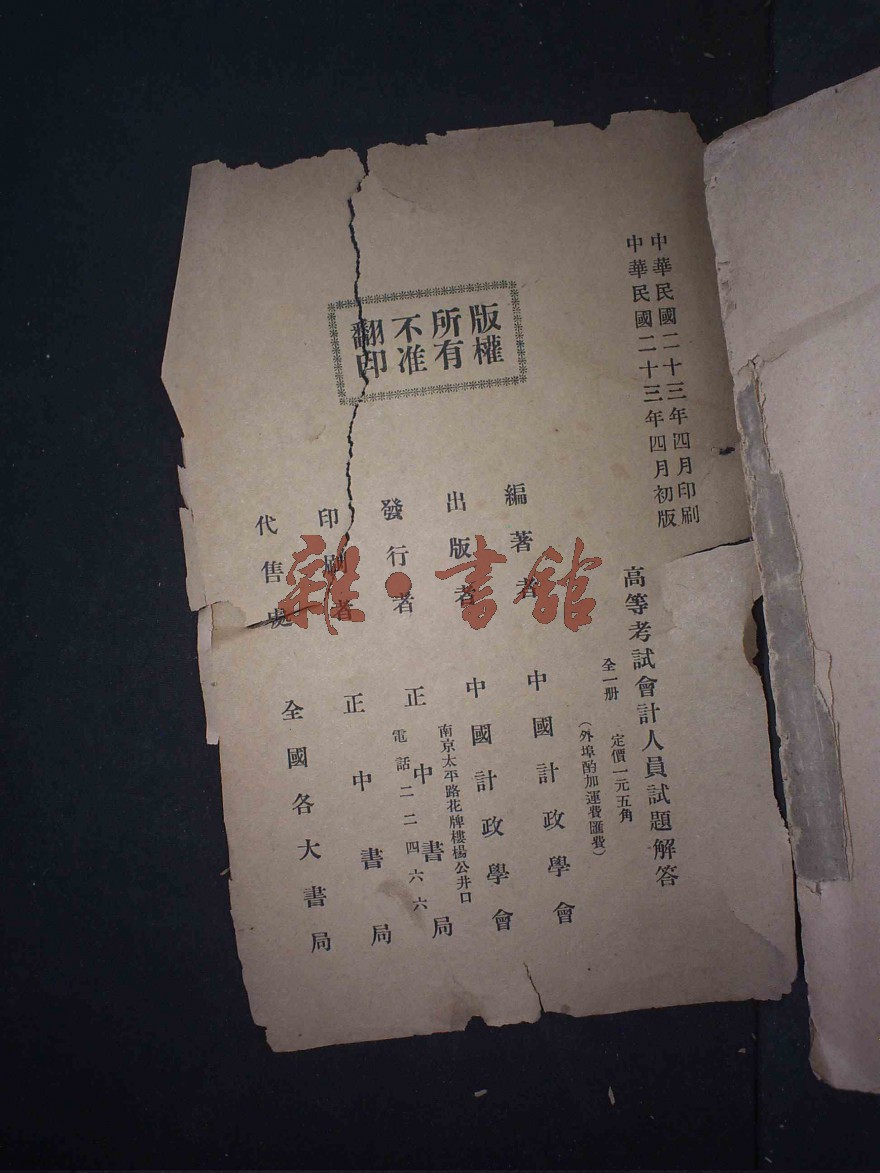 中華民國二十三年四月印刷
中華民國二十三年四月初版
高等考試會計人員試題解答
全一册 定價一元五角
(外埠酌加運費匯費)
版權
所有
不准
翻印
編著者 中國計政學會
出版者 中國計政學會
南京太平路花牌樓楊公井口
發行者 正中書局
電話二二四六六
印刷者 正中書局
代售處 全國各大書局
雜·書館